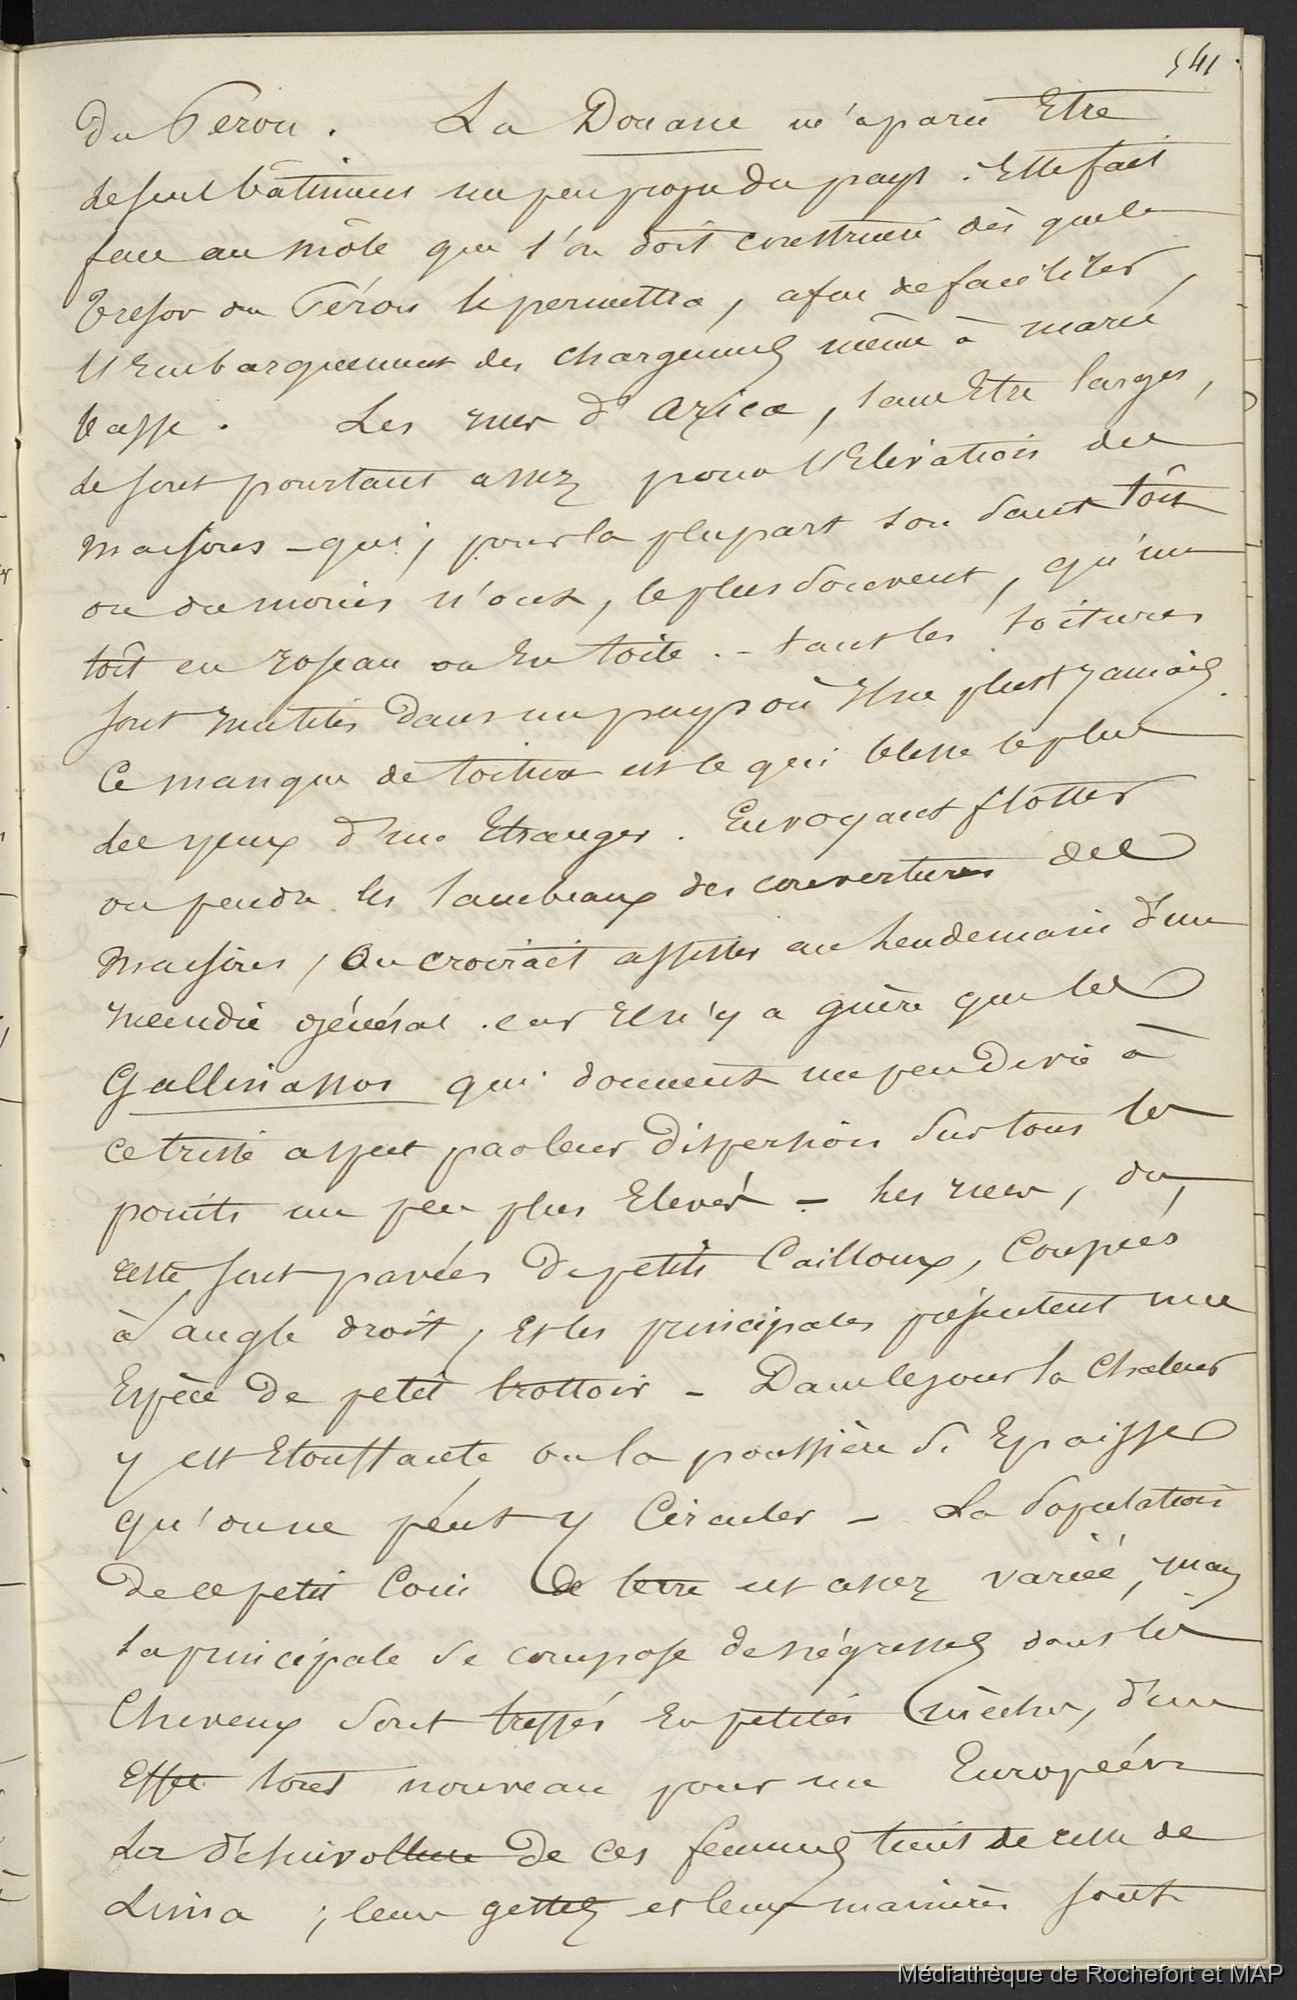 541
du Pérou. La Douane m'a paru Etre
le seul bâtiment un peu propre du pays. Elle fait
face au môle que l'on doit construire dès que le
Tresor du Pérou le permettra, afin de faciliter,
l'Embarquement des chargements même à marée
basse. Les rues d'Arica, sans Etre larges,
le sont pourtant assez pour l'Elévation des
maisons - qui, pour la plupart son sans toit
ou du moins n'ont, le plus souvent, qu'un
toit en roseau ou En toile. - tant les toitures
sont inutiles dans un pays où Il ne pleut jamais.
Ce manque de toiture est ce qui blesse le plus
les yeux d'un Etranger. En voyant flotter
ou pendre les lambeaux des couvertures des
maisons, On croirait assister au lendemain d'un
incendie général. car Il n'y a guère que les
Gallinassos qui donnent un peu de vie à
ce triste aspect par leur dispersion sur tous les
points un peu plus Elevés - Les rues, du
reste sont pavées de petits Cailloux, Coupées
à angle droit, et les principales présentent une
Espèce de petit trottoir - Dans le jour la Chaleur
y est Etouffante ou la poussière si Epaisse
qu'on ne peut y Circuler - La Population
de ce petit Coin de terre est assez variée, mais
la principale se compose de négresses dont les
Cheveux sont tressés En petites mèches, d'un
Effet tout nouveau pour un Européen
La désinvolture de ces femmes tient de celle de
Lima ; leurs gestes et leurs manières sont
Médiathèque de Rochefort et MAP